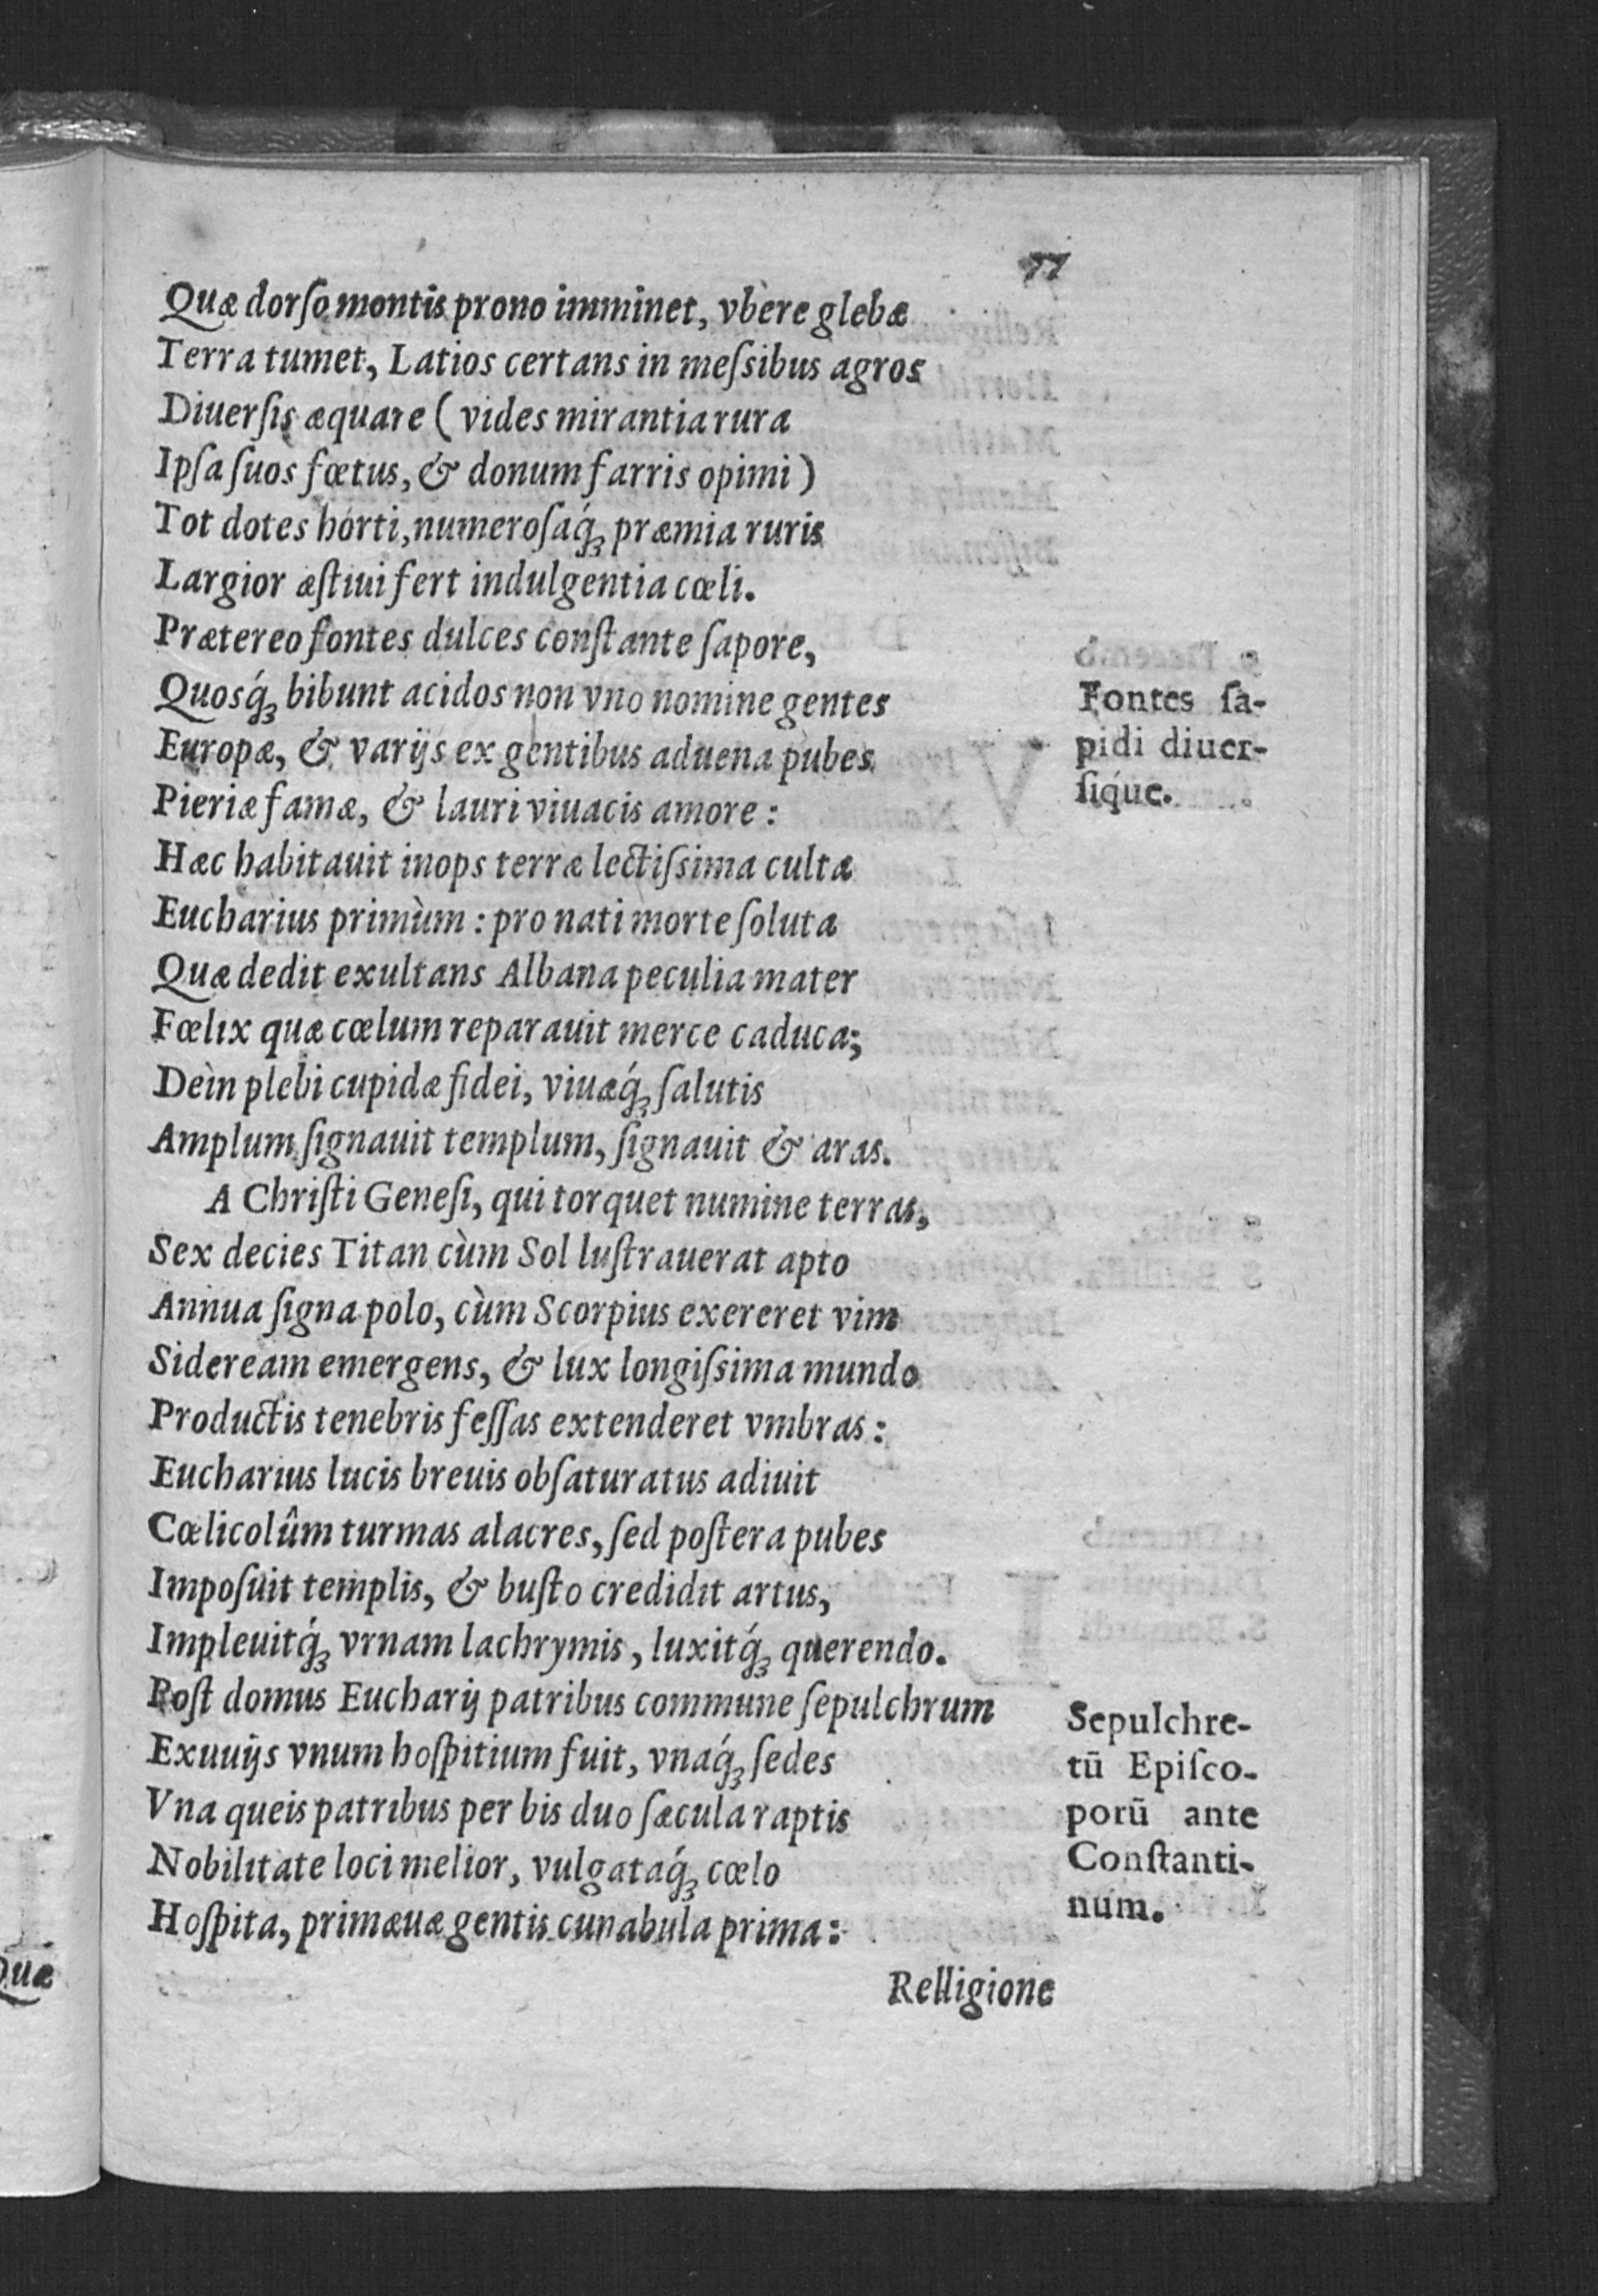 77
Quæ dorſo montis prono imminet, vbere glebæ
Terra tumet, Latios certans in meſsibus agros
Diuerſis æquare ( vides mirantia rura
Ipſa ſuos fœtus, & donum farris opimi )
Tot dotes horti, numeroſaq́ꝫ præmia ruris
Largior æſtiui fert indulgentia cœli.
Prætereo fontes dulces conſtante ſapore,
Quosq́ꝫ bibunt acidos non vno nomine gentes
Fontes ſa-
Europæ, & varijs ex gentibus aduena pubes
pidi diuer-
Pieriæ famæ, & lauri viuacis amore :
ſiq́ue.
Hæc habitauit inops terræ lectiſsima cultæ
Eucharius primùm : pro nati morte ſoluta
Quæ dedit exultans Albana peculia mater
Fœlix quæ cœlum reparauit merce caduca;
Deìn plebi cupidæ fidei, viuæq́ꝫ ſalutis
Amplum ſignauit templum, ſignauit & aras.
A Chriſti Geneſi, qui torquet numine terras,
Sex decies Titan cùm Sol luſtrauerat apto
Annua ſigna polo, cùm Scorpius exereret vim
Sideream emergens, & lux longiſsima mundo
Productis tenebris feſſas extenderet vmbras :
Eucharius lucis breuis obſaturatus adiuit
Cœlicolûm turmas alacres, ſed poſtera pubes
Impoſuit templis, & buſto credidit artus,
Impleuitq́ꝫ vrnam lachrymis, luxitq́ꝫ querendo.
Poſt domus Eucharij patribus commune ſepulchrum
Sepulchre-
Exuuijs vnum hoſpitium fuit, vnaq́ꝫ ſedes
tū Epiſco-
Vna queis patribus per bis duo ſæcula raptis
porū ante
Nobilitate loci melior, vulgataq́ꝫ cœlo
Conſtanti-
Hoſpita, primæuæ gentis cunabula prima :
num.
Relligione
Quæ